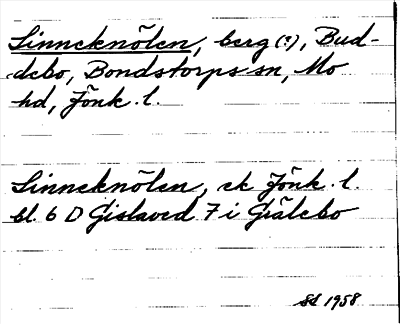 Sinneknölen, berg (?), Bud-
debo, Bondstorps sn, Mo
hd, Jönk. l.
Sinneknölen, ek Jönk. l.
bl. 6 D Gislaved 7 i Grälebo
SS 1958